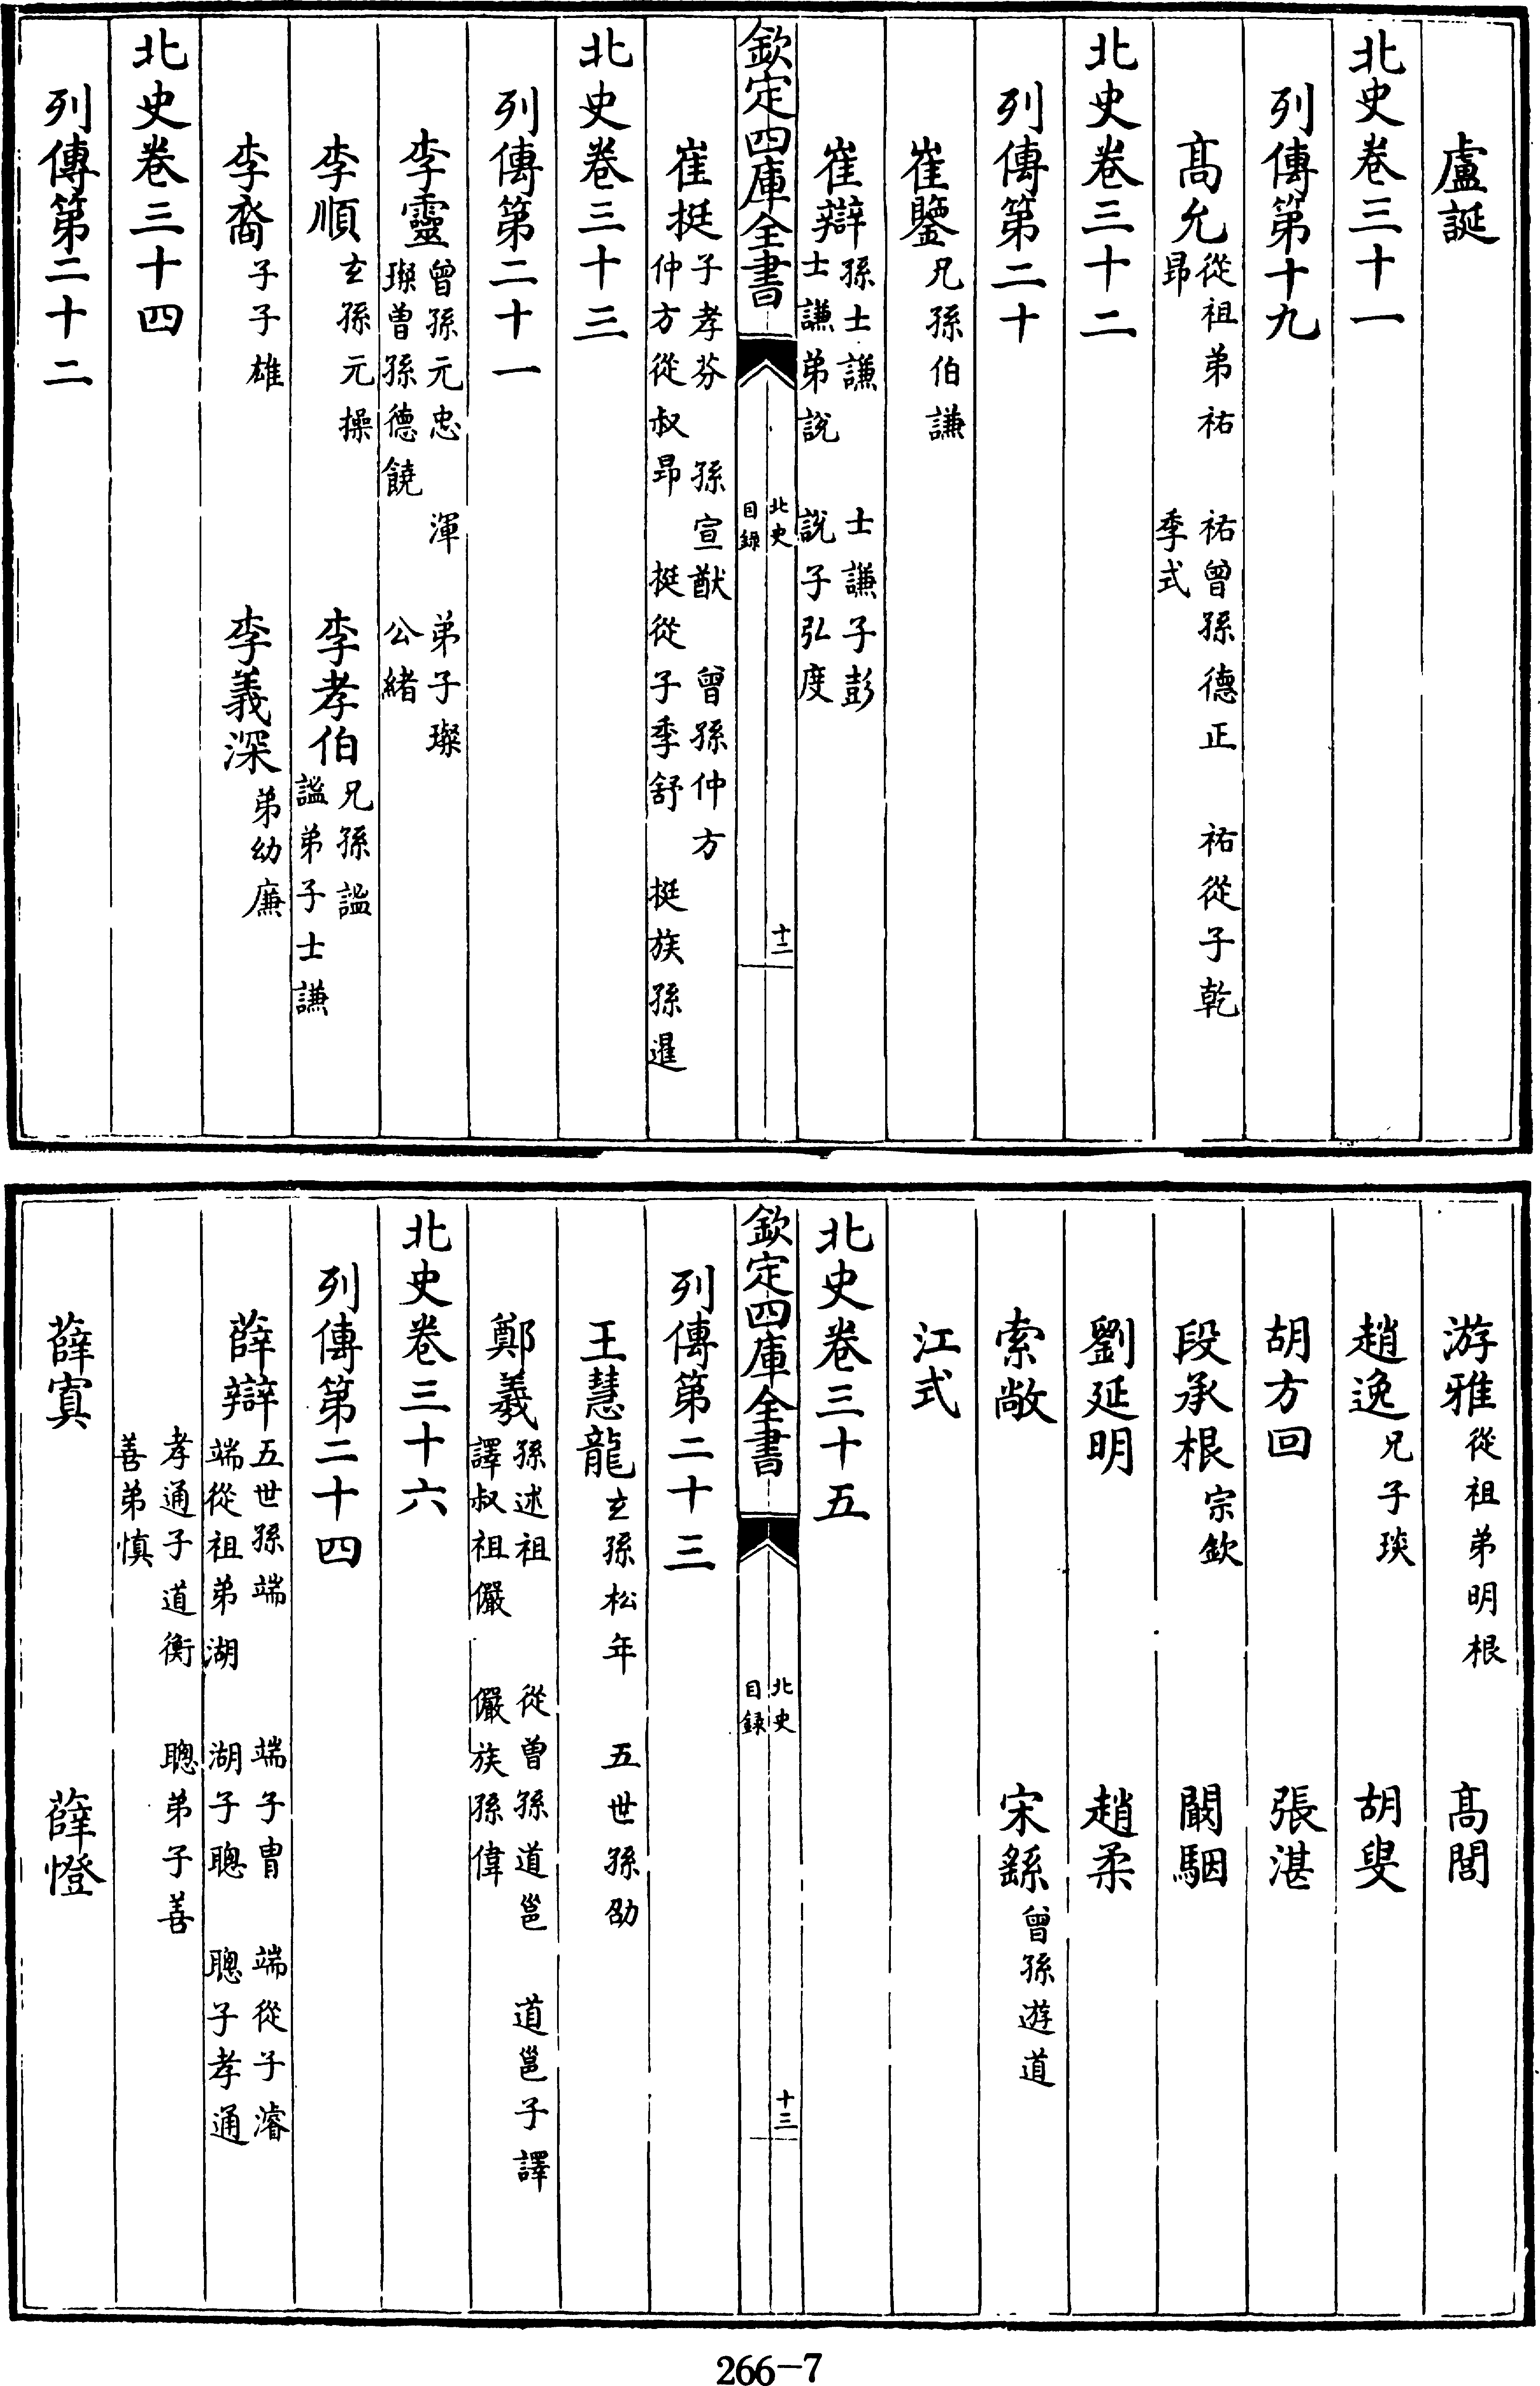 盧誕
北史卷三十一
列傳第十九
高允從祖弟祐 祐曾孫德正 祐從子乾
昻 季式
北史卷三十二
列傳第二十
崔鑒兄孫伯謙
崔辯孫士謙 士謙子彭
士謙弟說 說子弘度
欽定四庫全書
北史
目錄
十二
崔挺子孝芬 孫宣猷 曾孫仲方
仲方從叔昻 挺從子季舒 挺族孫暹
北史卷三十三
列傳第二十一
李靈曾孫元忠 渾 弟子璨
璨曾孫德饒 公緒
李順玄孫元操 李孝伯兄孫謐
謐弟子士謙
李裔子子雄 李義深弟幼廉
北史卷三十四
列傳第二十二
游雅從祖弟明根 高閭
趙逸兄子琰 胡叟
胡方回 張湛
段承根宗欽 闞駰
劉延明 趙柔
索敞 宋繇曾孫遊道
江式
北史卷三十五
欽定四庫全書
北史
目錄
十三
列傳第二十三
王慧龍玄孫松年 五世孫劭
鄭羲孫述祖 從曾孫道邕 道邕子譯
譯叔祖儼 儼族孫偉
北史卷三十六
列傳第二十四
薛辯五世孫端 端子胄 端從子濬
端從祖弟湖 湖子聰 聰子孝通
孝通子道衡 聰弟子善
善弟慎
薛寘 薛憕
266-7